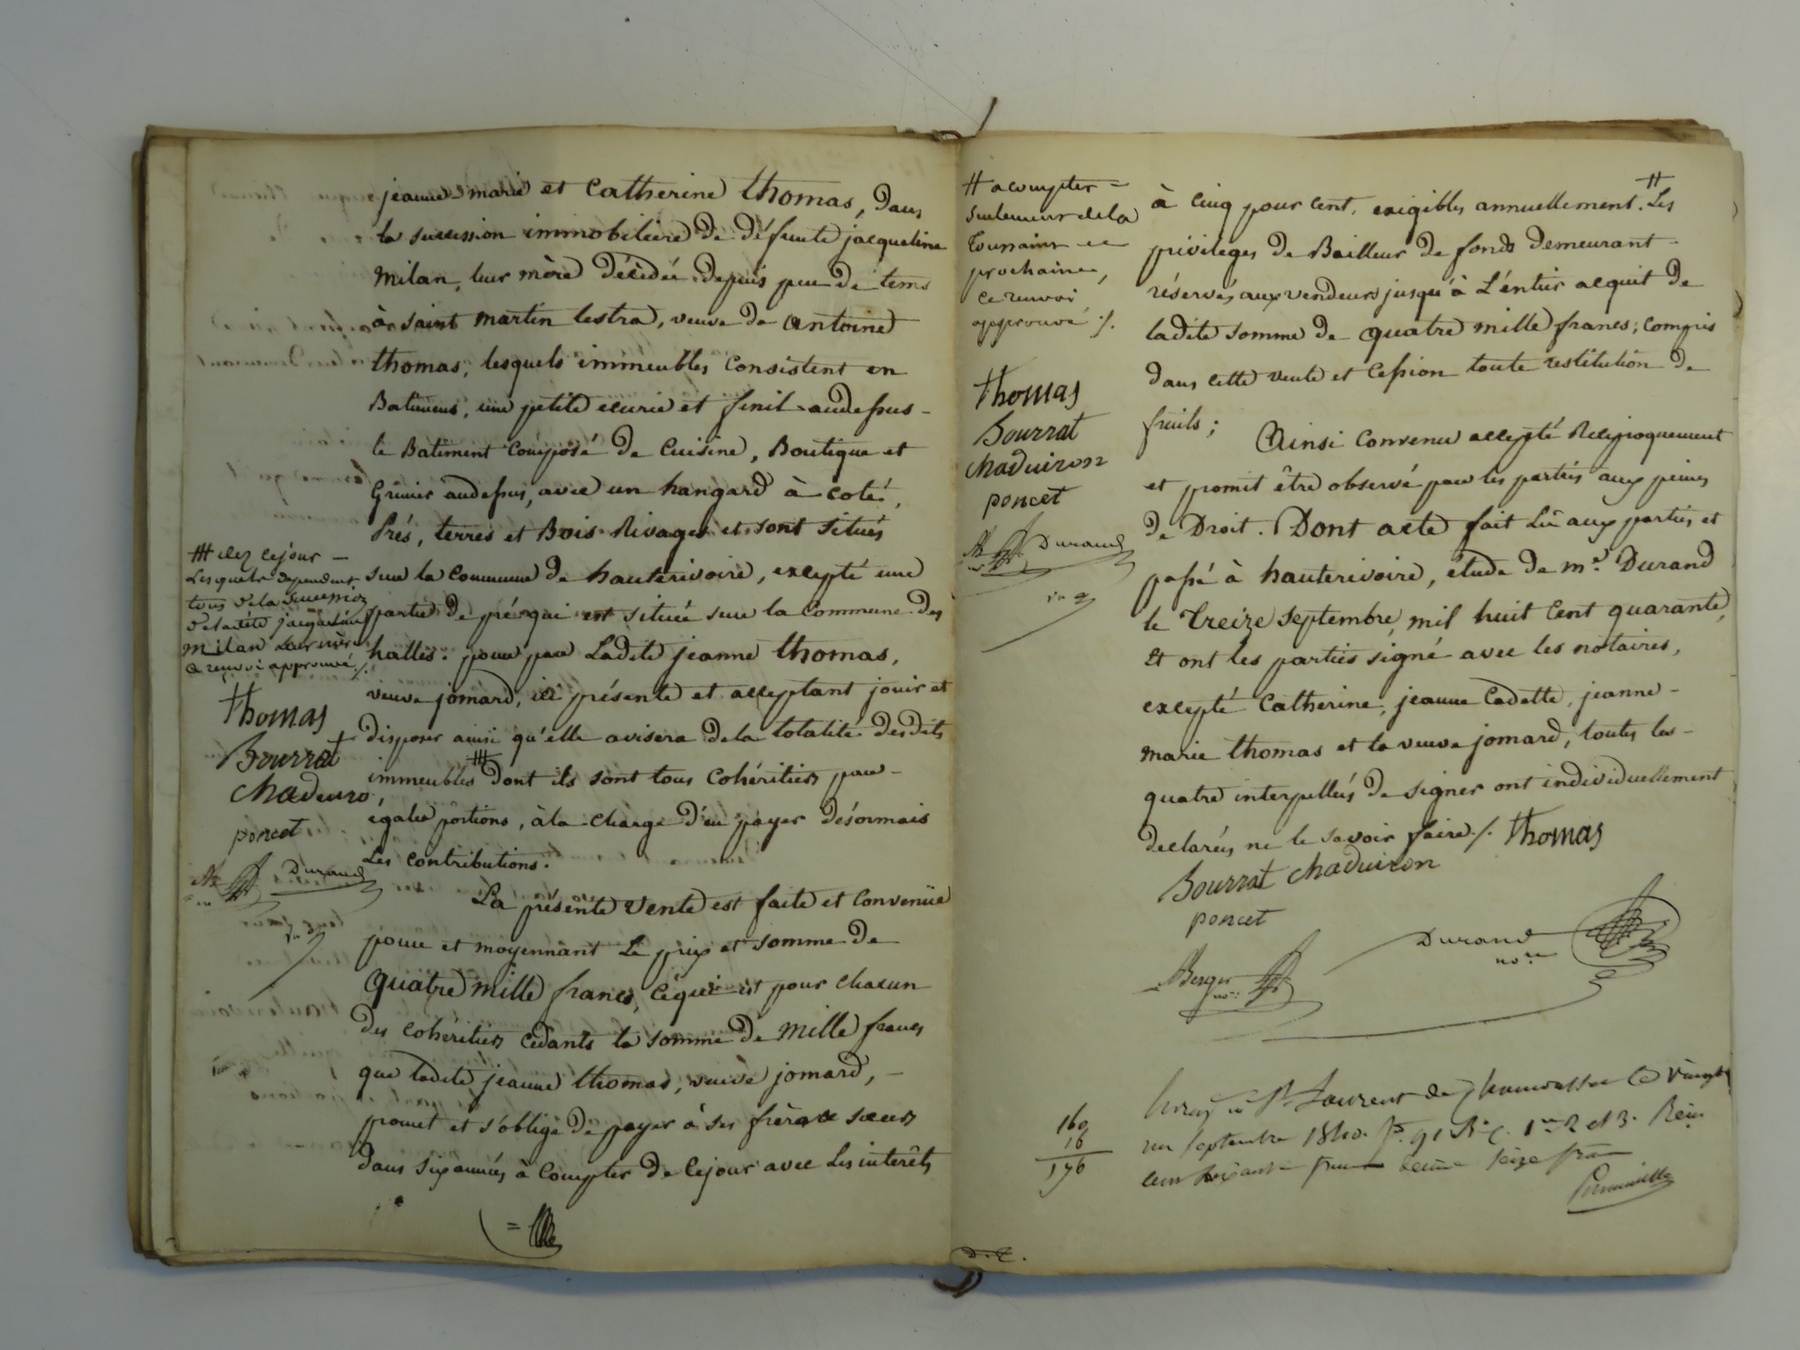 jeanne marie et Catherine thomas, dans
la succession immobiliere de défunte jacqueline
milan, leur mère décédée depuis peu de tems
à saint martin lestra, veuve de antoine
thomas, lesquels immeubles consistent en
Batimens, une petite ecurie et fenil audessus -
le Batiment composé de cuisine, Boutique et
Grenier audessus, avec un hangard à coté,
Prés, terres et Bois Rivages et sont situés
sur la commune de hauterivoire, excepté une
partie de pré qui est située sur la Commune des
halles. pour par Ladite jeanne thomas,
veuve jomard, ici présente et acceptant jouir et
disposer ainsi qu'elle avisera de la totalité desdits
immeubles # dont ils sont tous cohéritiers par -
egales portions, à la charge d'en payer désormais
Les contributions.
La présente vente est faite et convenüe
pour et moyennant Le prix et somme de
quatre mille francs, cequi est pour chacun
des cohéritiers cédants la somme de mille francs
que ladite jeanne thomas, veuve jomard, -
promet et s'oblige de payer à ses frère et sœurs
dans six années à compter de cejour avec les intérêts
# dez cejour -
Lesquels dependent
tous de la succession
de ladite jacqueline
milan leur mère
ce renvoi approuvé ./.
thomas
Bourrat
chaduiro,
poncet
Durand
# a compter =
seulement de la
Toussaint
prochaine,
ce renvoi
approuvé ./.
thomas
Bourrat
chaduiron
poncet
Durand
à cinq pour cent, exigibles annuellement. # Les
privileges de Bailleur de fonds demeurant -
réservés aux vendeurs jusqu'à L'entier acquit de
ladite somme de quatre mille francs; compris
dans cette vente et cession toute restitution de
fruits;
Ainsi convenu accepté Réciproquement
et promit être observé par les parties aux peines
de Droit. Dont acte fait Lû aux parties et
passé à hauterivoire, etude de me. Durand
le treize septembre mil huit cent quarante,
et ont les parties signé avec les notaires,
excepté Catherine, jeanne Cadette, jeanne -
marie thomas et la veuve jomard, toutes les -
quatre interpellées de signer ont individuellement
declarées ne le savoir faire ./. thomas
Bourrat chaduiron
poncet
Durand
nore
Berger
nore
160
16
176
Enreg. à St Laurent de Chamousset le vingt
un septembre 1840. fo. 91 Ro. c. 1re 2 et 3. Reçu
cent soixante francs décime seize francs